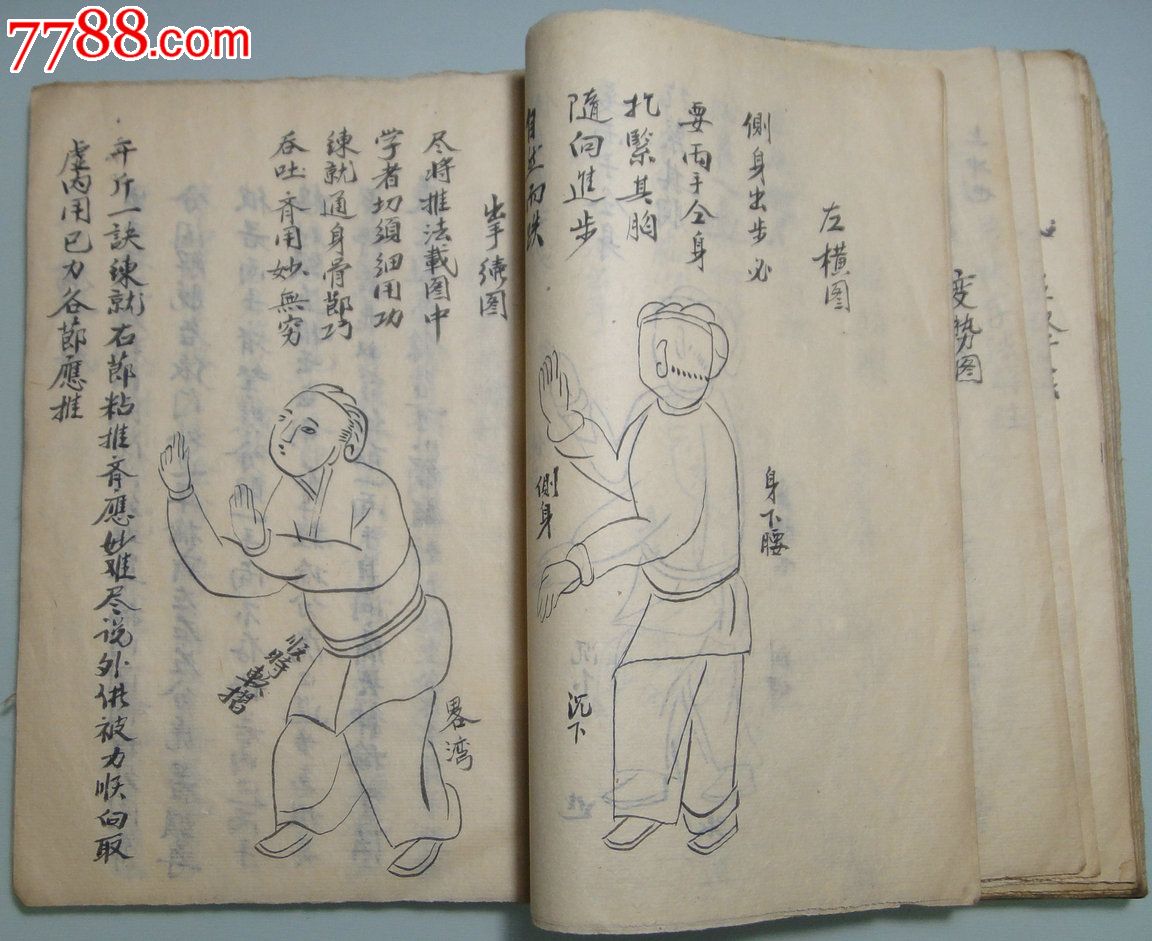 7788.com
変势图
左橫图
側身出步必
要两手仝身
扎緊其胸
隨向進步
身下腰
側身
沉下
出手绕图
尽將推法載图中
学者切須細用功
練就通身骨節巧
吞吐齐用妙無穷
畧湾
时
斤一訣練就右節粘推齐應妙难尽说外供被力順向取
虚内用已力各節應推